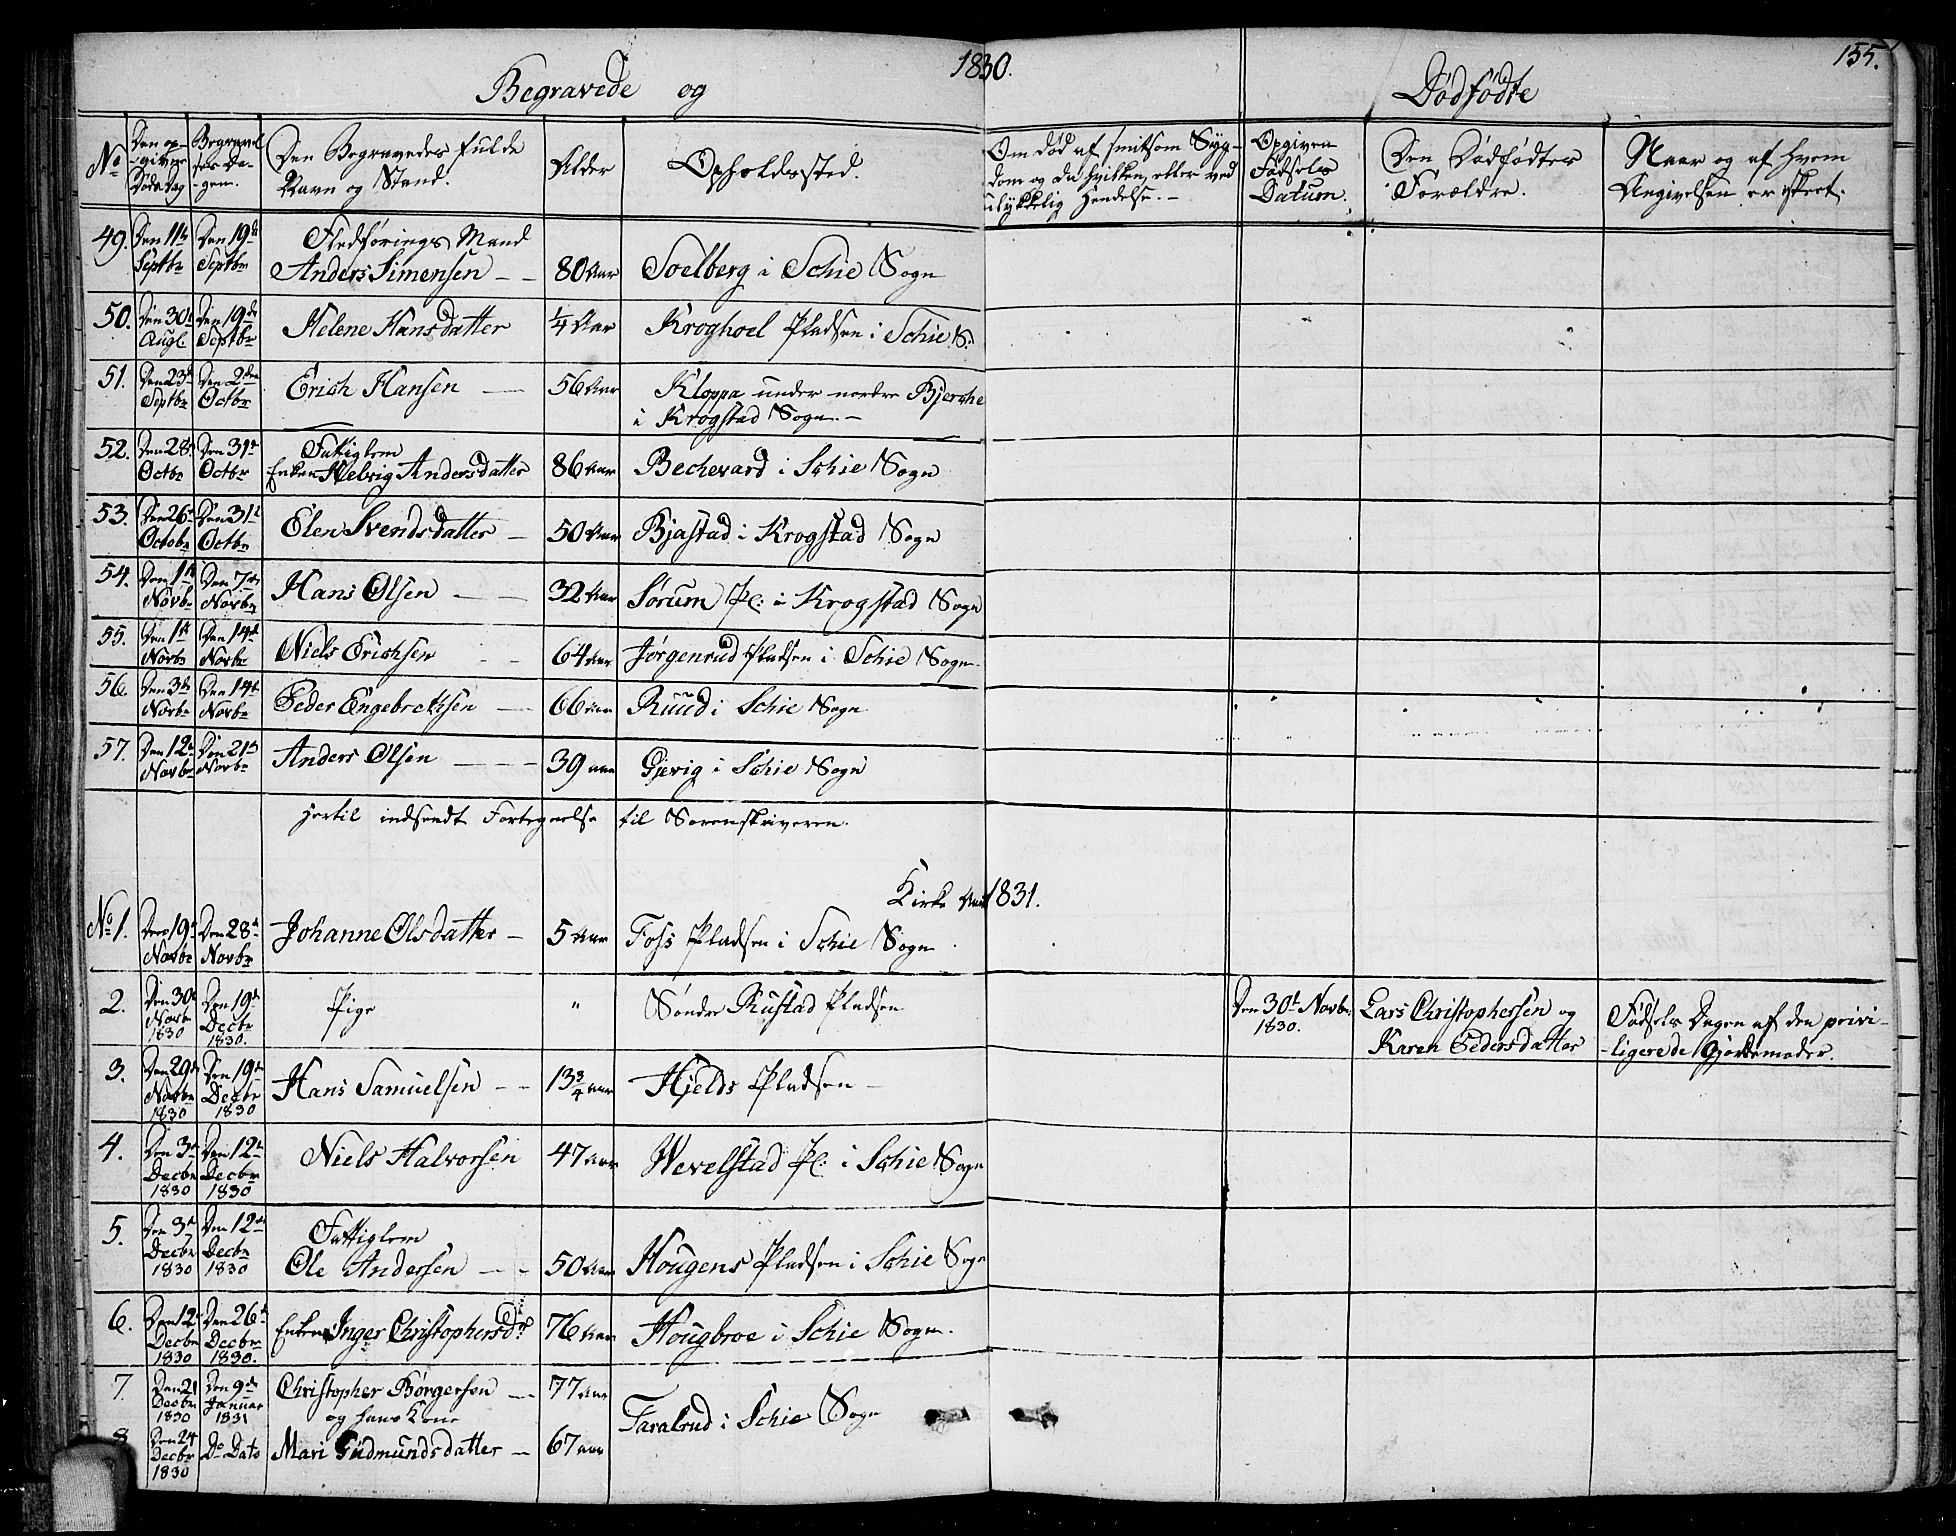 1830.
155.
Begravede og
Dødfødte
No
Den op-
givne
Døds Dag
Begravel
ses Da-
gen.
Den Begravedes fulde
Navn og Stand.
Alder
Opholdssted.
Om død af smitsom Syg-
dom og da hvilken, eller ved
ulykkelig Hendelse. -
Opgiven
Fødsels
Datum.
Den Dødfødtes
Forældre.
Naar og af hvem
Angivelsen er skeet.
49. Den 11te Den 19de
Septbr Septbr
Anders Simensen - - 80 Aar Soelberg i Schie Sogn
50. Den 30te Den 19de
Augl. Septbr
Helene Hansdatter 1/4 Aar Kroghoel Pladsen i Schie S.
51. Den 23de Den 2den
Septbr Octbr
Erich Hansen - 56 Aar Kloppa under nordre Bjerche
i Krogstad Sogn. -
52. Den 28de Den 31te
Octbr Octbr
Fattiglem
Enken Helvig Andersdatter 86 Aar Bechevard i Schie Sogn
53. Den 26de Den 31te
Octobr Octbr
Elen Svendsdatter - 50 Aar Bjastad i Krogstad Sogn
54. Den 1te Den 7de
Novbr Novbr
Hans Olsen - - 32 Aar Sørum Pl: i Krogstad Sogn
55. Den 1te Den 14de
Novbr Novbr
Niels Erichsen - - 64 Aar Jørgenrud Pladsen i Schie Sogn
56. Den 3de Den 14de
Novbr Novbr
Peder Engebretsen - 66 Aar Ruud i Schie Sogn
57. Den 12te Den 21de
Novbr Novbr
Anders Olsen - - - 39 Aar Gjevig i Schie Sogn
Hertil indsendt Fortegnelse til Sorenskriveren.
Kirke Aaret 1831.
No 1. Den 19de Den 28de
Novbr Novbr
Johanne Olsdatter - 5 Aar Foss Pladsen i Schie Sogn
2. Den 30te Den 19de
Novbr Decbr
1830 1830.
Pige " Søndre Rustad Pladsen
Den 30te Novbr.
1830.
Lars Christophersen og
Karen Pedersdatter
Fødsels Dagen af den privi-
-ligerede Gjordemoder.
3. Den 29de Den 19de
Novbr Decbr
1830 1830
Hans Samuelsen - - 13 3/4 Aar Hjelds Pladsen -
4. Den 3de Den 12te
Decbr Decbr
1830 1830
Niels Halvorsen 47 Aar Wevelstad Pl: i Schie Sogn
5. Den 3de Den 12te
Decbr Decbr
1830 1830
Fattiglem
Ole Andersen - - 50 Aar Hougens Pladsen i Schie Sogn
6. Den 12te Den 26de
Decbr Decbr
1830 1830.
Enken Inger Christophersdr 76 Aar Hougbroe i Schie Sogn.
7. Den 21 Den 9de
Decbr Januar
1830 1831
Christopher Børgersen - 77 Aar
og hans Kone
Taralrud i Schie Sogn
8 Den 24 Do Dato
Decbr
1830
Mari Gudmundsdatter - 67 Aar